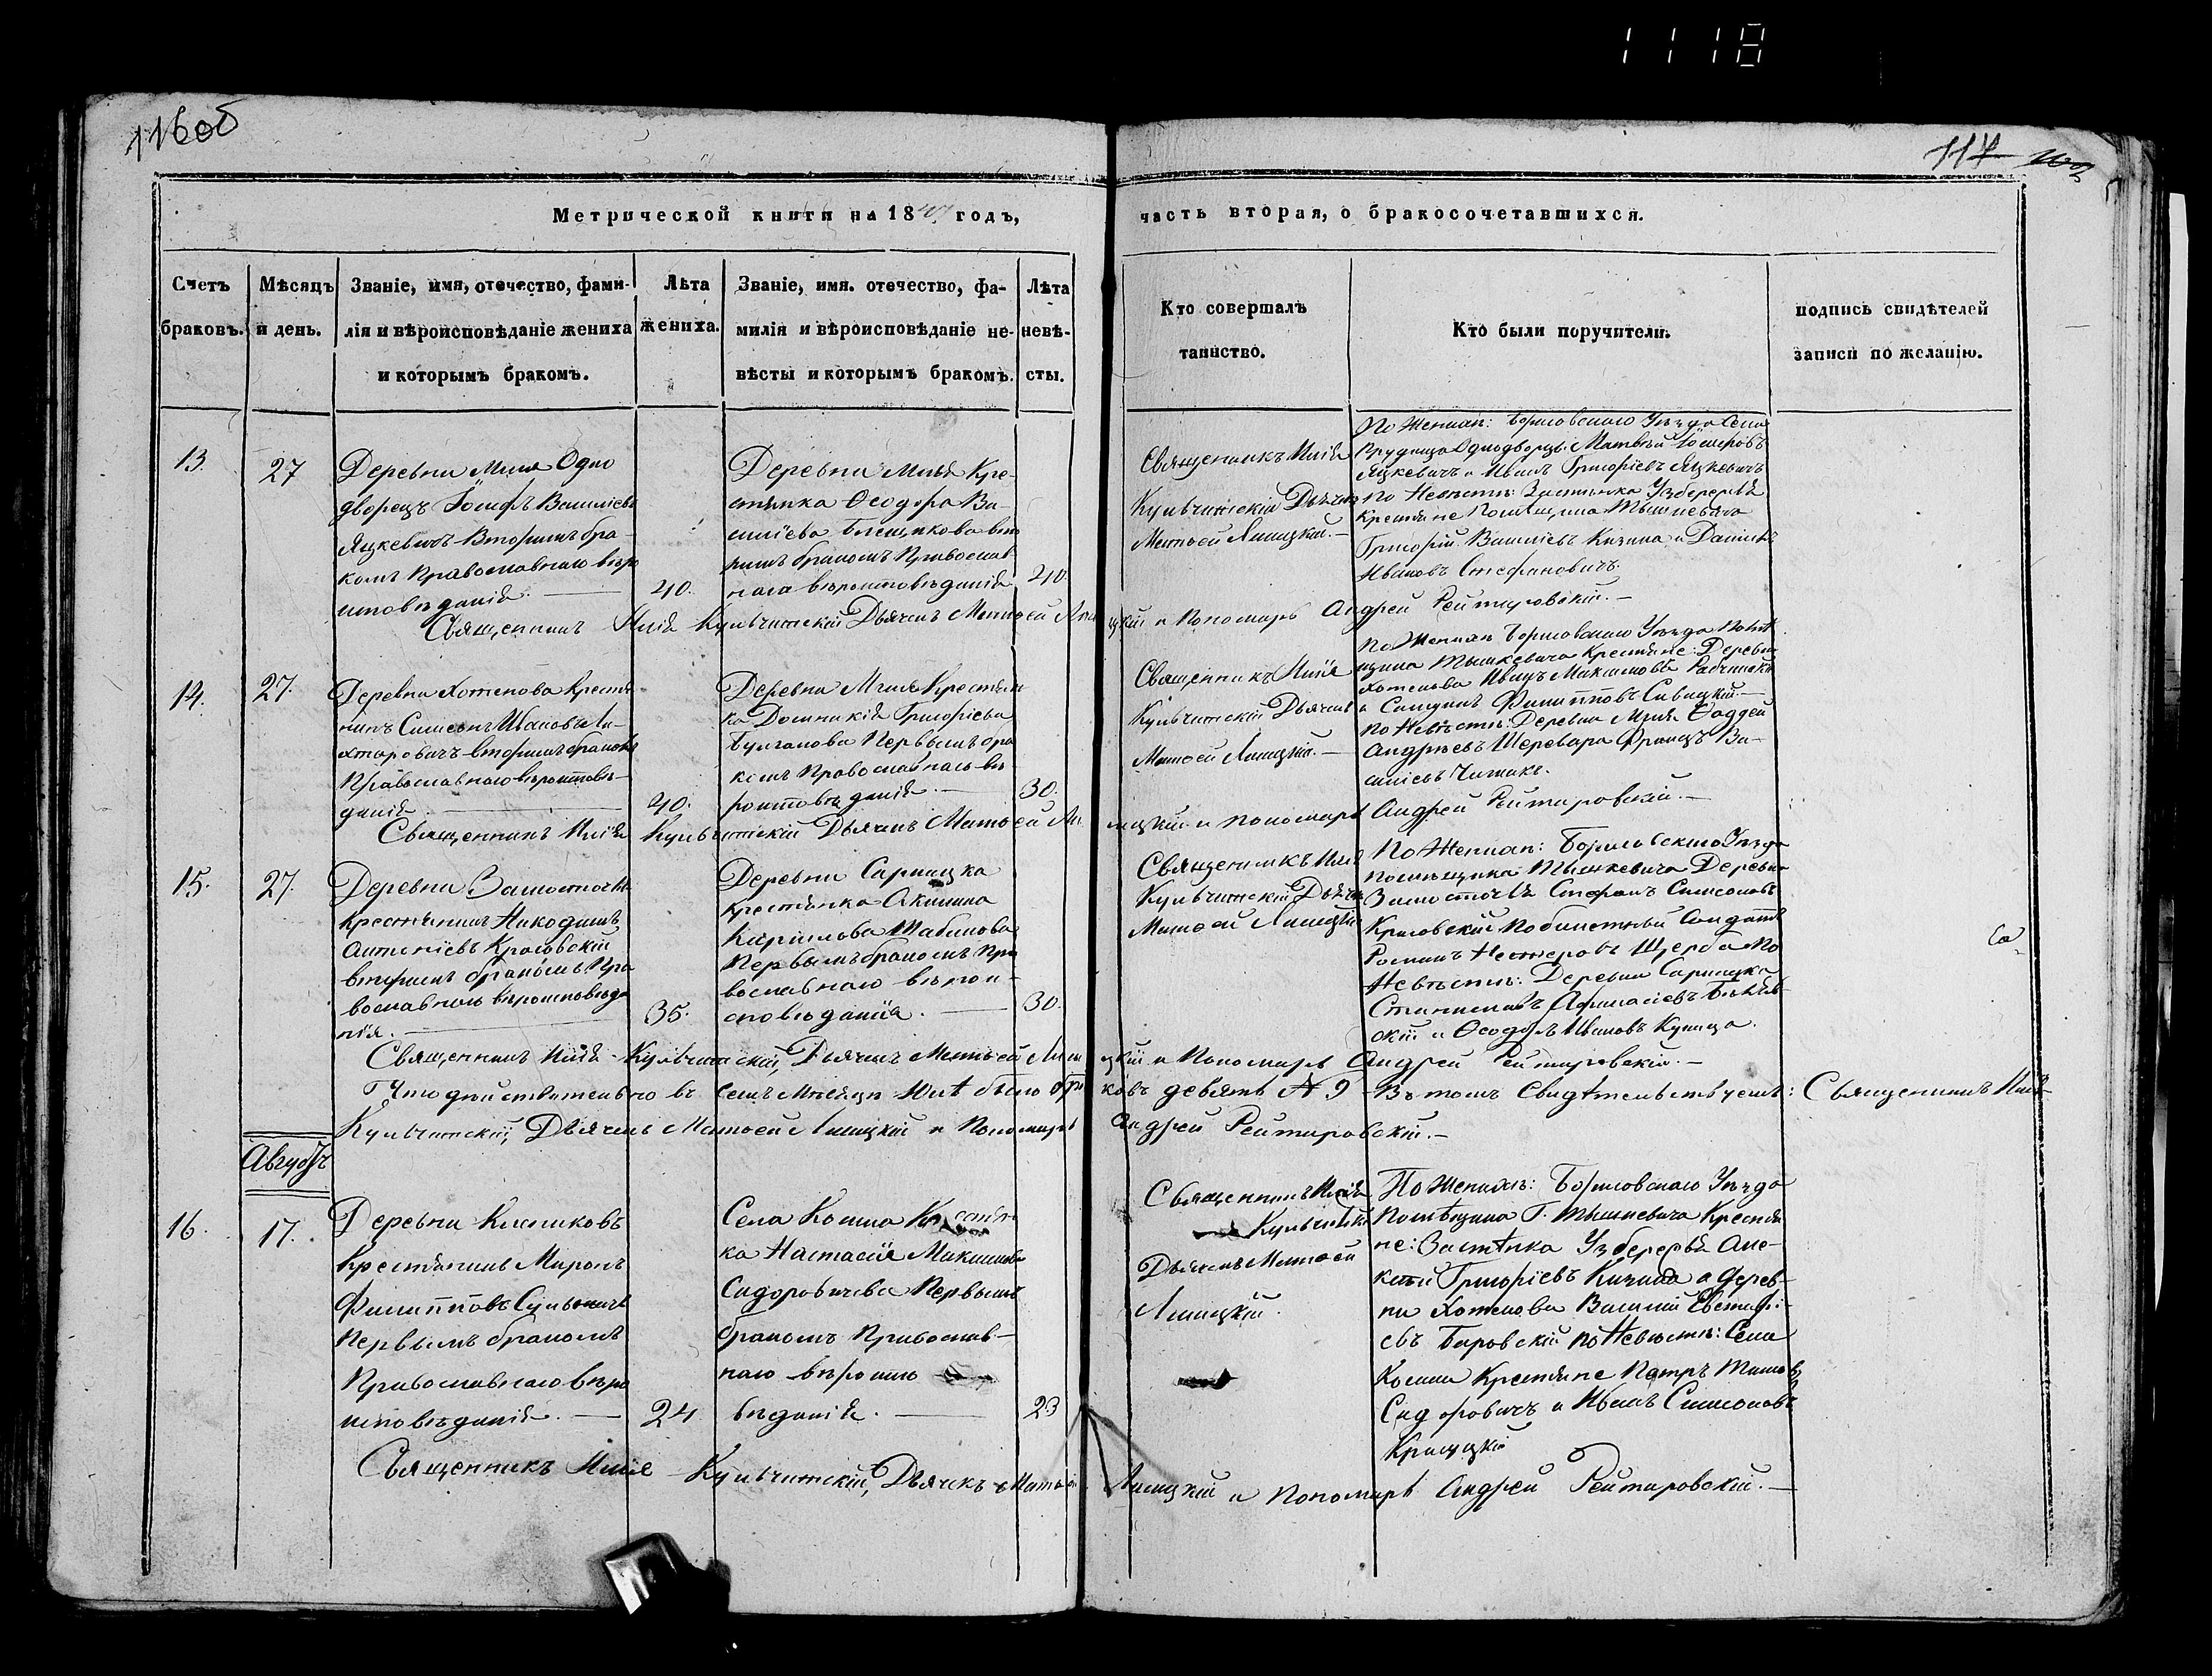 1118
116об
117
Метрической книги на 18 годъ,
часть вторая, о бракосочетавшихся.
Счетъ браковъ.
Мѣсяцъ и день.
Званіе, имя, отечество, фами-
лія и вѣроисповѣданіе жениха
и которымъ бракомъ.
Лѣта
жениха.
Званіе, имя. отечество, фа-
милія и вѣроисповѣданіе не-
вѣсты и которымъ бракомъ.
Лѣта
невѣ-
сты.
Кто совершалъ
таинство.
Кто были поручители.
подпись свидѣтелей
записи по желанію.
13.
27
Деревни Мгля Одно
дворецъ Іосифъ Василіевъ
Яцкевичъ Вторымъ бра-
комъ Православнаго вѣро
исповѣданія.
40.
Деревни Мгля Кре-
стьянка Ѳеодора Ва-
силіева вто
рымъ бракомъ Православ
наго вѣроисповѣданія
40.
Священникъ Илія
Кульчитскій Дьячекъ
Матѳей Лисицкій.
По Жених: Борисовскаго Уѣзда Села
Одноворцы: Матвѣй
Яцкевичъ и Иванъ Григоріевъ Яцкевичъ
по Невѣстѣ: Застѣнка Узбережья
Крестьяне Помѣщика Тышкевича
Григорій Василіевъ Кизина и Даніилъ
Ивановъ Стефановичъ.
Священникъ Илія Кульчитскій Дьячекъ Матѳей Лисицкій и Пономарь Андрей Рейтаровскій.
14.
27.
Деревни Хотенова Крестья
нинъ Симеонъ Ивановъ
вторымъ бракомъ
Православнаго вѣроисповѣ-
данія
40.
Деревни Мгля Крестьян
ка Домникія Григоріева
Булганова Первымъ бра
комъ Православнаго вѣ-
роисповѣданія.
30.
Священникъ Илія
Кульчитскій Дьячекъ
Матѳей Лисицкій.
По Жених Борисовскаго Уѣзда Помѣ
щика Тышкевича Крестьяне: Деревни
Хотенова Иванъ Максимовъ
и Филипповъ Сивицкій.
по Невѣстѣ: Деревни Мгля Ѳаддей
Андреевъ Шеревара Францъ Ва-
силіевъ Чижикъ.
Священникъ Илія Кульчитскій Дьячекъ Матѳей Лисицкій и пономарь Андрей Рейтаровскій.
15.
27.
Деревни Замосточья
Крестьянинъ Никодимъ
Антоніевъ Красовскій
вторымъ бракомъ Пра
вославнаго вѣроисповѣда
нія.
35.
Деревни Сарницка
Крестьянка Акилина
Кирилова Шабинова
Первымъ бракомъ Пра
вославнаго вѣрои-
сповѣданія.
30.
Священникъ Илія
Кульчитскій Дьячекъ
Матѳей Лисицкій
По Жених: Борисовскаго Уѣзда
помѣщика Тышкевича Деревни
Замосточья Стефанъ Симеоновъ
Красовскій Солдатъ
Романъ Нестеровъ Щерба По
Невѣстѣ: Деревни Сарницка
Станиславъ Афанасіевъ
скій и Ѳеодоръ Ивановъ Куница.
Со
Священникъ Илія Кульчитскій, Дьячекъ Матѳей Лисицкій и Пономарь Андрей Рейтаровскій.
Что дѣйствительно въ семъ мѣсяцѣ Іюлѣ было браковъ девять № 9 Въ томъ Свидѣтельствуемъ: Священникъ Илія
Кульчитскій, Дьячекъ Матѳей Лисицкій и Пономарь Андрей Рейтаровскій.
Августъ
16.
17.
Деревни Клениковъ
Крестьянинъ Миронъ
Филипповъ
Первымъ бракомъ
Православнаго вѣро
исповѣданія.
24
Села Косина Крестьян
ка Настасія Максимова
Сидоровичева Первымъ
бракомъ Православ-
наго вѣроиспо
вѣданія.
23
Священникъ Илія
Кульчитскій
Дьячекъ Матѳей
Лисицкій.
По Женихѣ: Борисовскаго Уѣзда
Помѣщика Г. Тышкевича Крестья
не: Застѣнка Узбережья Але-
ксѣй Григоріевъ Кизина а дерев-
ни Хотенова Василій Евстафі-
евъ Баровскій по Невѣстѣ: Села
Косина Крестьяне Петръ
Сидоровичъ и Иванъ Симеоновъ
Священникъ Илія Кульчитскій, Дьячекъ Матѳей Лисицкій и Пономарь Андрей Рейтаровскій.